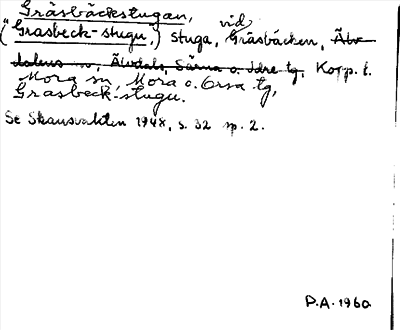 Gräsbäckstugan, vid
("Grasbeck-stugu",) stuga, Gräsbäcken, Älv-
dalens sn, Älvdals, Särna o. Idre tg, Kopp. l.
Mora sn, Mora o. Orsa tg,
Grasbeck-stugu.
Se Skansvakten 1948, s. 32 sp. 2.
P.A. 1960